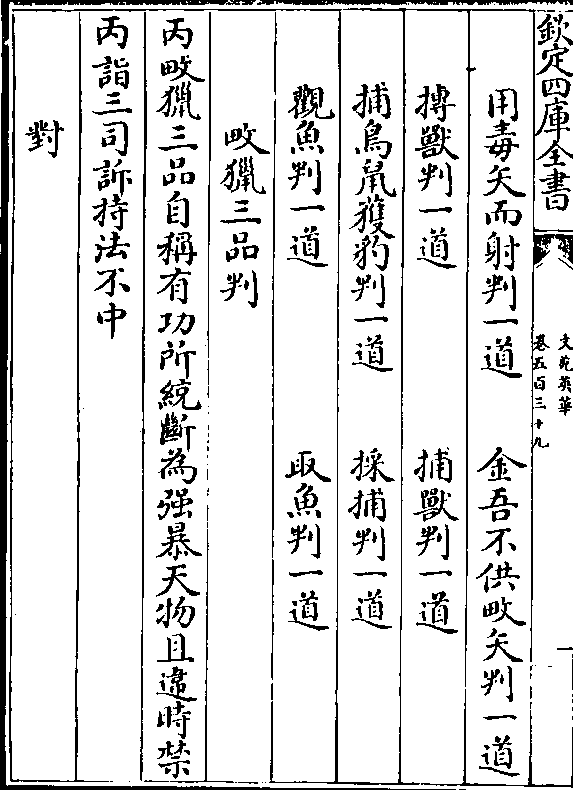 欽定四庫全書
文苑英華
卷五百三十九
一
用毒矢而射判一道 金吾不供畋矢判一道
搏獸判一道 捕獸判一道
捕鳥鼠獲豹判一道 採捕判一道
觀魚判一道 取魚判一道
畋獵三品判
丙畋獵三品自稱有功所統斷為强暴天物且違時禁
丙詣三司訴持法不中
對